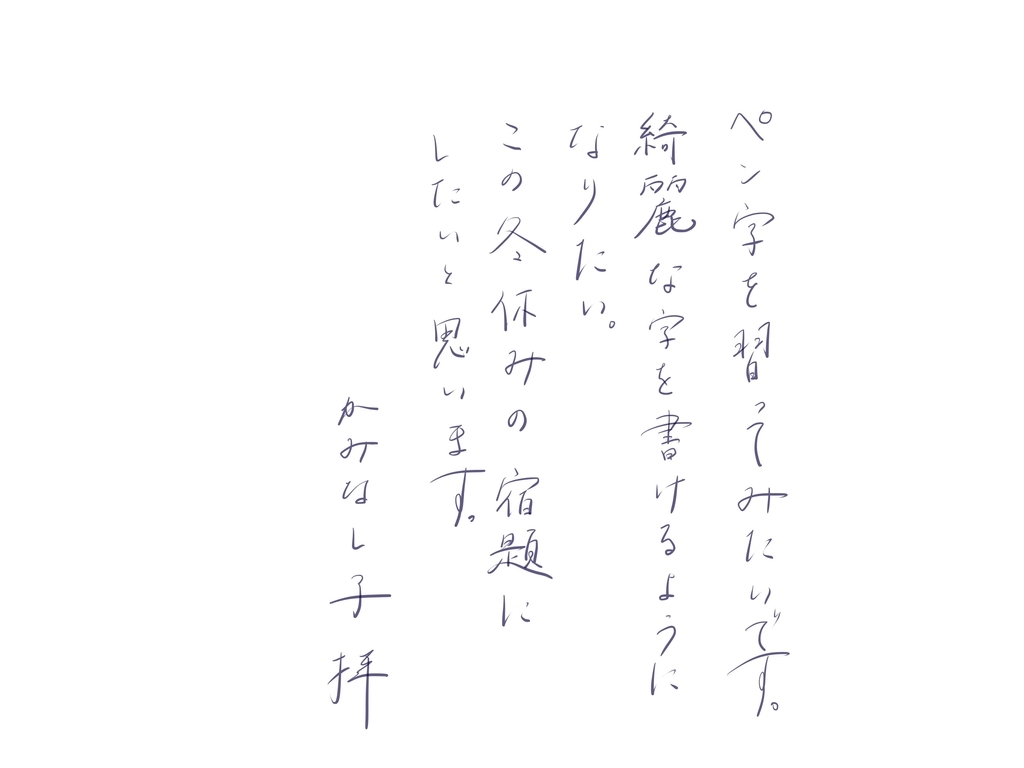 ペン字を習ってみたいです。
綺麗な字を書けるように
なりたい。
この冬休みの宿題に
したいと思います。
かみなし子 拝